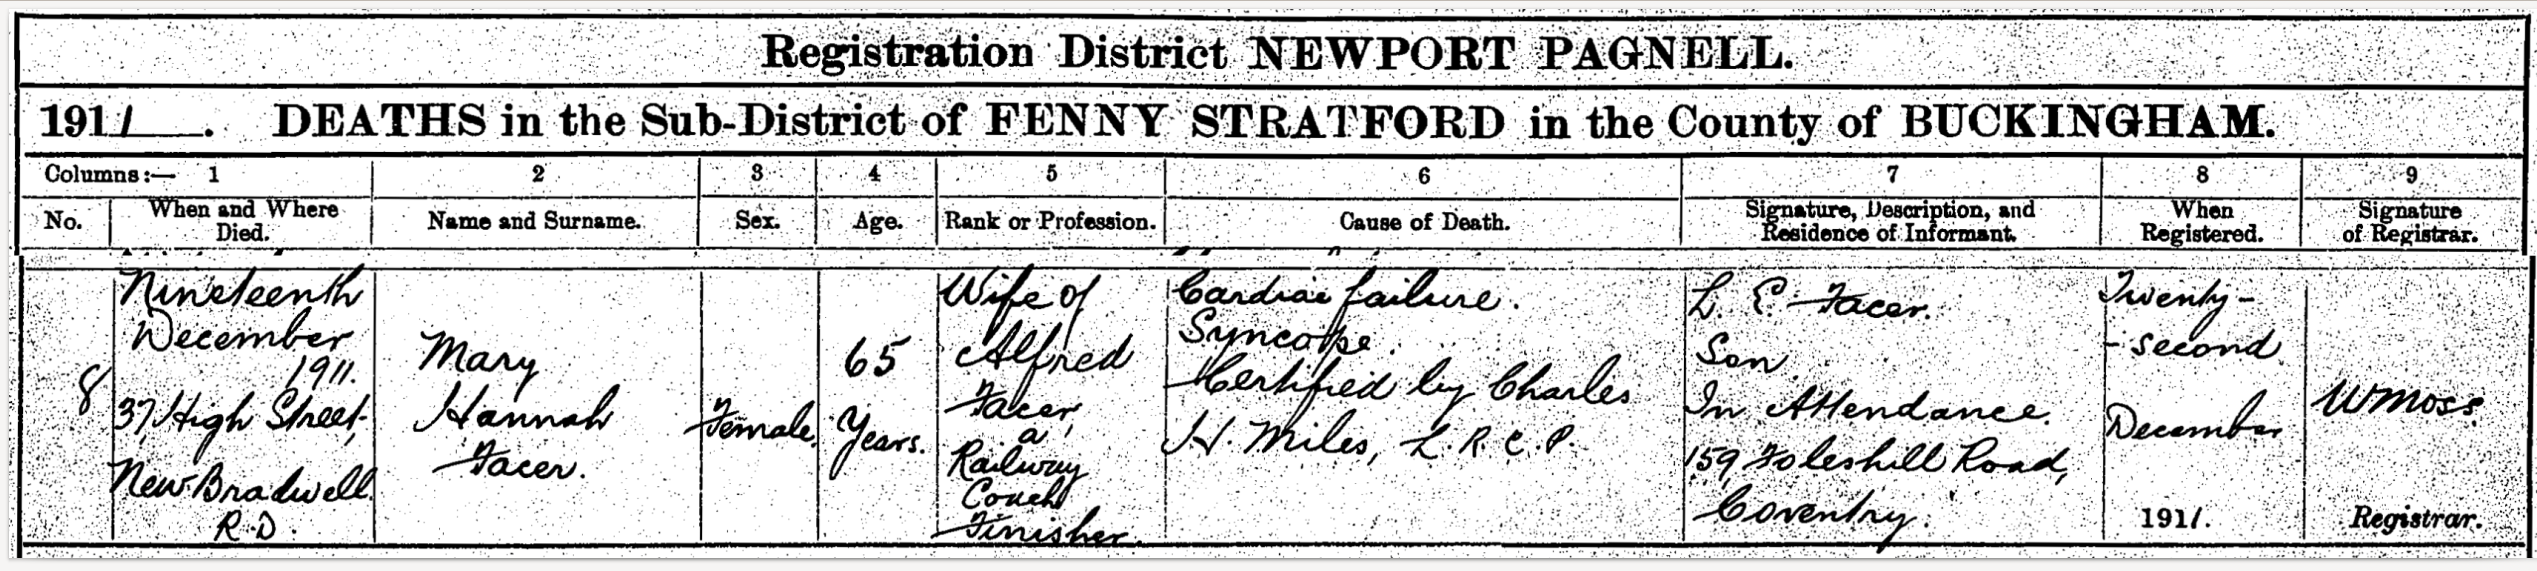 Registration District NEWPORT PAGNELL.
1911. DEATHS in the Sub-District of FENNY STRATFORD in the County of BUCKINGHAM.
Columns:— 1 2 3 4 5 6 7 8 9
No.
When and Where
Died.
Name and Surname.
Sex.
Age.
Rank or Profession.
Cause of Death.
Signature, Description, and
Residence of Informant.
When
Registered.
Signature
of Registrar.
8
Nineteenth
December
1911.
37, High Street,
New Bradwell
R.D.
Mary
Hannah
Facer.
Female.
65
Years.
Wife of
Alfred
Facer,
a
Railway
Coach
Finisher.
Cardiac failure.
Syncope.
Certified by Charles
H. Miles, L.R.C.P.
L. E. Facer.
Son
In Attendance.
159, Foleshill Road,
Coventry.
Twenty-
-second
December
1911.
W Moss
Registrar.